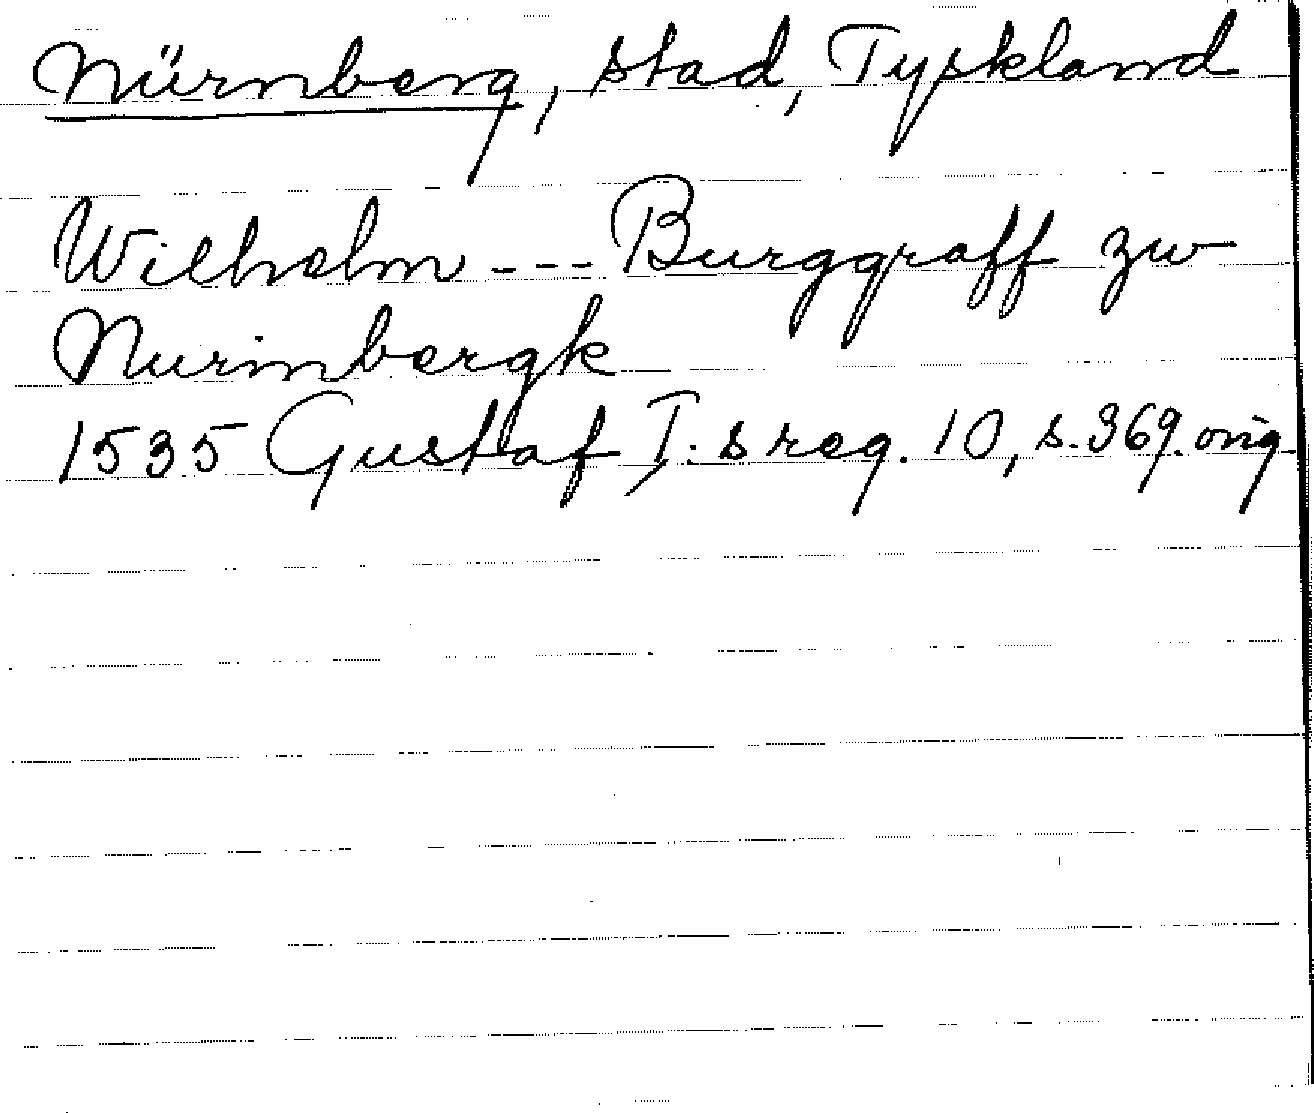 Nürnberg, stad, Tyskland
Wilhelm --- Burggraff zw
Nurinbergk
1535 Gustaf I:s reg. 10, s. 369. orig.